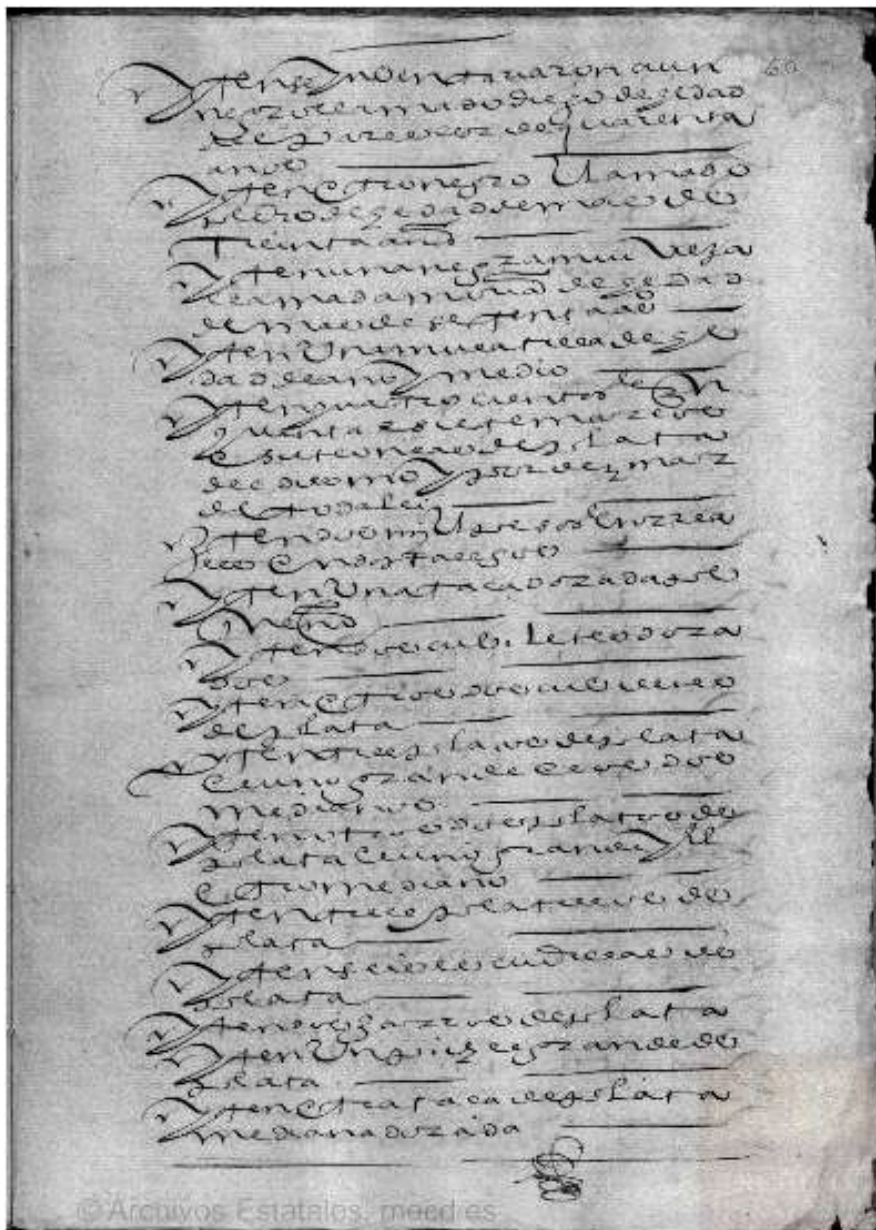 60
Yten se ynventiraron a un
negro llamado diego de hedad
de parecer de quarenta
años
Yten otro negro llamado
pedro de hedad de mas de
treinta años
Yten una negra mui vieja
llamada maria de hedad
de mas de setenta años
Yten un mulatillo de he
dad de año y medio
Yten quatrocientos e cin
quenta e siete marcos
e siete onças de plata
del diezmo y por diezmar
de toda lei
Yten dos mill pesos de a ocho rea
les en dos talegos
Yten una taça dorada de
Yten dos cubiletes dora
dos
Yten otros dos cubiletes
de plata
Yten tres platos de plata
el uno grande e los dos
medianos
Yten otros dos platos de
plata el uno grande y el
otro mediano
Yten tres platillos de
plata
Yten seis escudillas de
plata
Yten dos jarros de plata
Yten un pichel grande de
plata
Yten otra taça de plata
mediana dorada
© Archivos Estatales, mecd.es